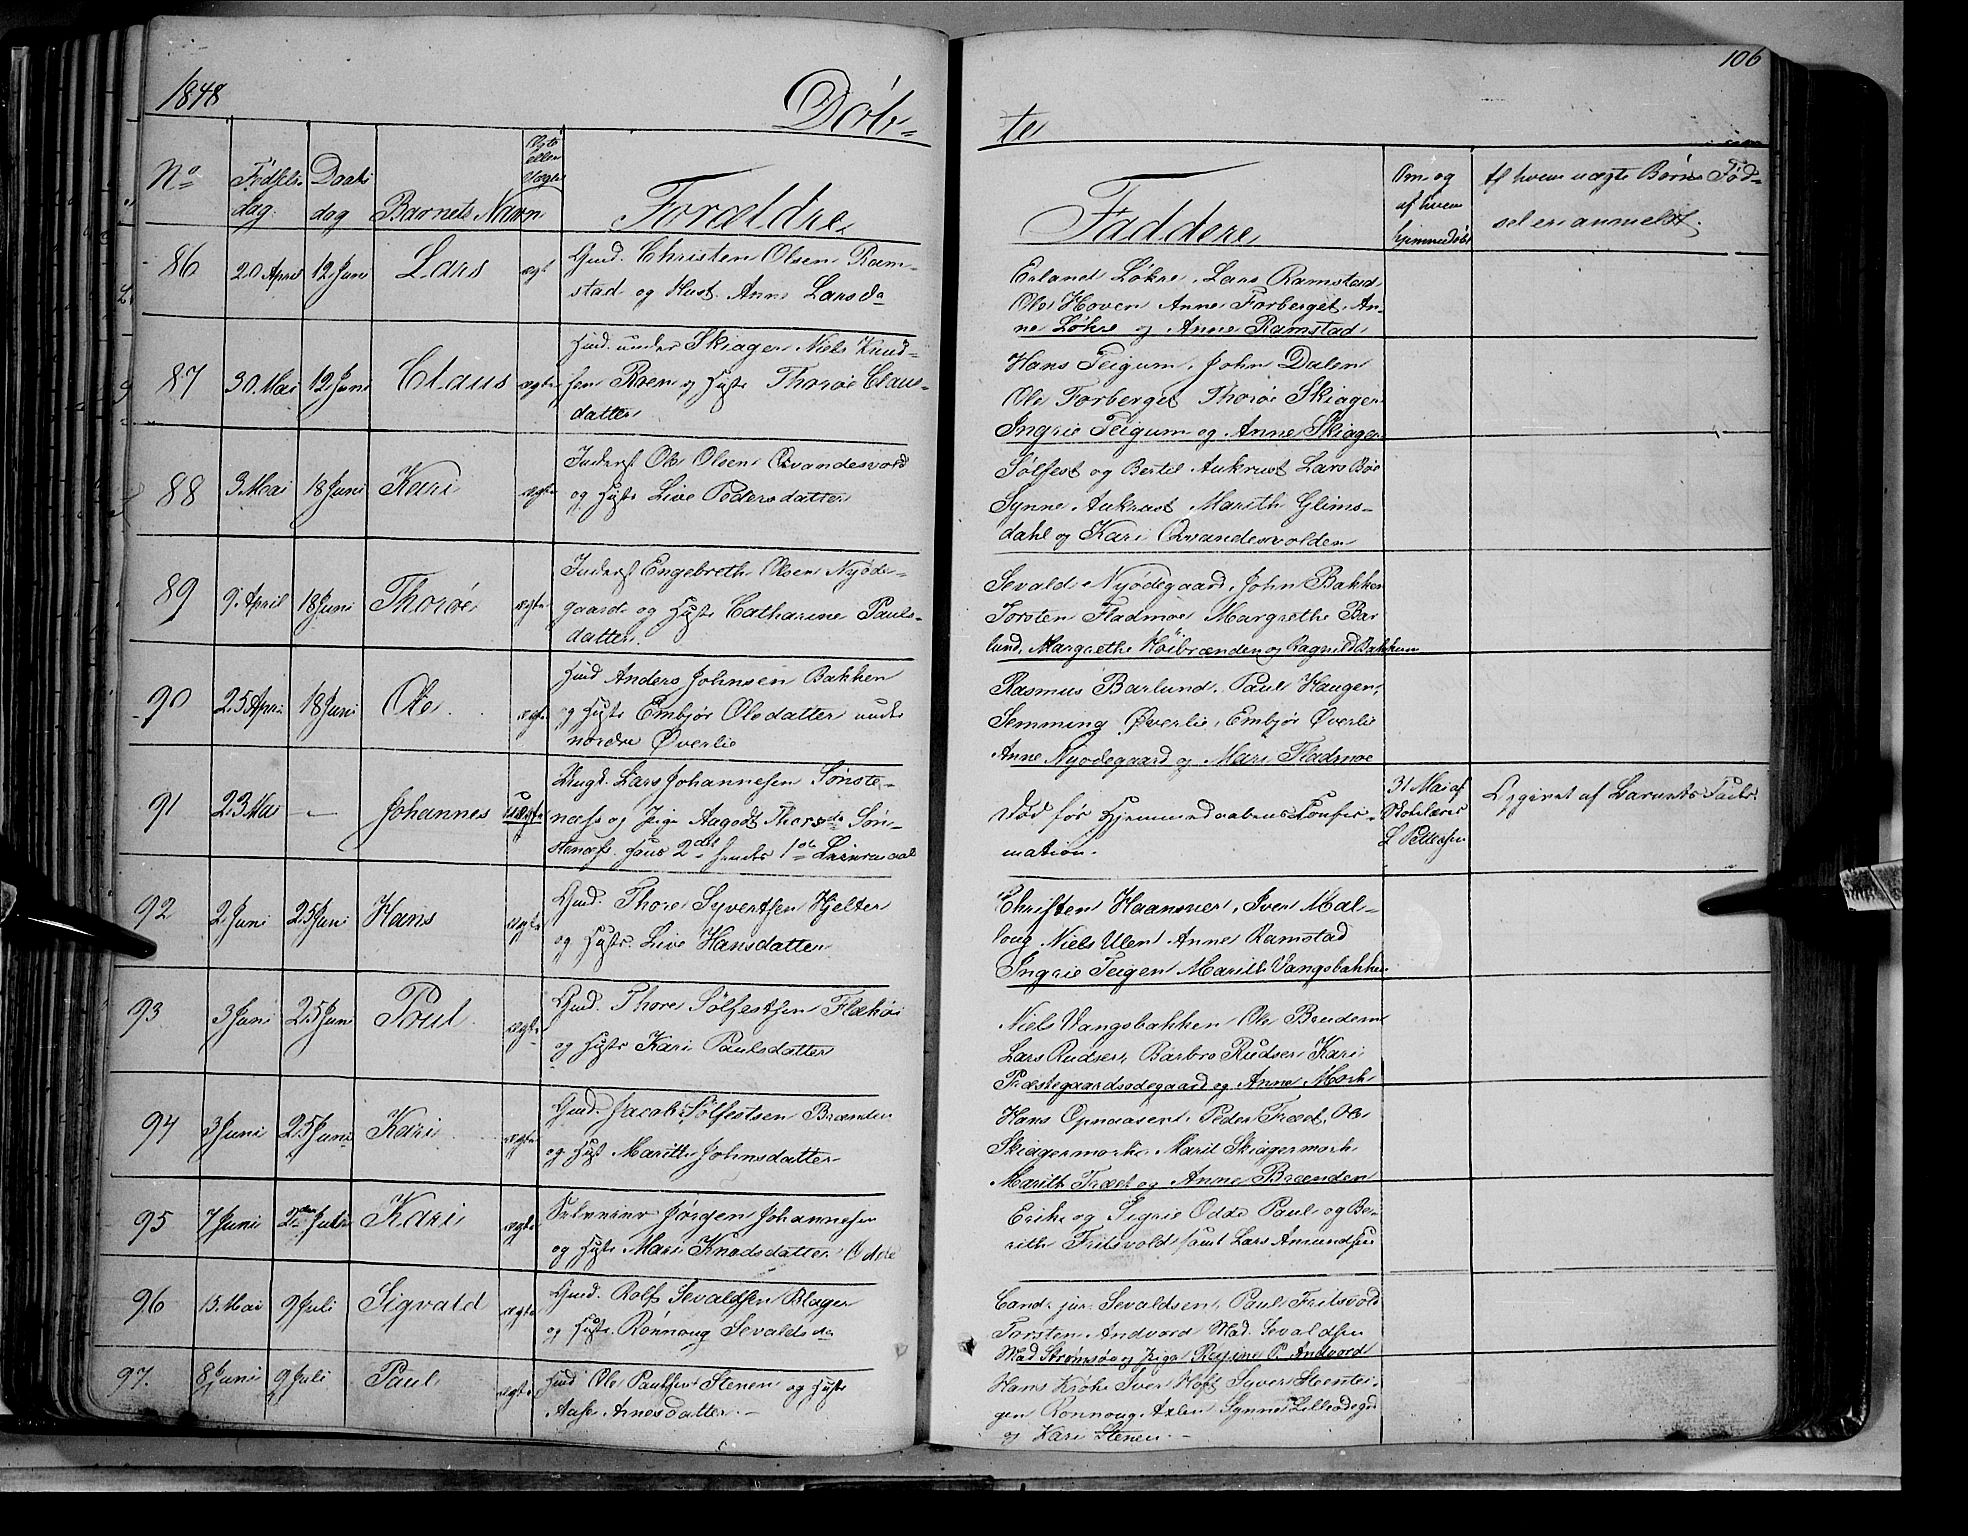 1848
Døb-
te
106
No
Fødsels-
dag.
Daabs
dag
Barnets Navn
Ægte
eller
Uægte
Forældre
Faddere
Om og
af hvem
hjemmedøbt
Af hvem uægte Børns Fød-
sel er anmeldt.
86 20 April 12 Juni Lars ægt
Gmd. Christen Olsen Ram-
stad og Hust. Anne Larsda
Erland Løkre, Lars Ramstad
Ole Hoven Anne Forberget, An-
ne Løkre og Anne Ramstad
87 30. Mai 12 Juni Claus ægte
Huusmd. under Skiager Niels Knud-
sen Roen og Hust Thorøe Claus-
datter
Hans Teigum, John Dalen
Ole Forberget Thorøe Skiager
Ingrie Teigum og Anne Skiager
88 3 Mai 18 Juni Kari ægte
Inderst Ole Olsen Qvandesvold
og Hust. Live Pedersdatter
Sølfest og Bertil Aukrust Lars Bøe
Synne Aukrust Marith Glims-
dahl og Kari Qvandesvolden
89 9. April 18 Juni Thorøe ægte
Inderst Engebreth Olsen Nyøde-
gaard og Hust Catharine Pauls-
datter
Sevald Nyødegaard, John Bakken
Torsten Fladmoe Margrethe Bar-
lund, Margrethe Høibrænden og Ragnild Bakken
90 25 April 18 Juni Ole ægte
Huusmd Anders Johnsen Bakken
og Hust Embjør Olsdatter under
nordre Øverlie
Rasmus Barlund, Paul Haugen,
Semming Øverlie, Embjør Øverlie
Anne Nyødegaard og Mari Fladmoe
91 23 Mai — Johannes uægte
Ungk. Lars Johannesen Sønste-
næss og Pige Aagodt Thorsda Søn-
stenæss. Hans 2det hendes 1ste Leiermaal
Død før Hjemmedaabens Confir-
mation.
31 Mai af
Skolelærer
L Pettersen
Opgivet af Barnets Fader
92 2 Juni 25 Juni Hans ægte
Gmd. Thore Syvertsen Hjelter
og Hust. Live Hansdatter
Christen Haansner, Iver Mal-
loug Niels Ulen Anne Ramstad
Ingrie Teigen Marith Vangsbakken
93 3 Juni 25 Juni Poul ægte
Gmd. Thore Sølfestsen Flækøi
og Hust Kari Paulsdatter
Niels Vangsbakken Ole Bruden
Lars Rudser, Barbro Rudser Kari
Præstegaardsødegaard og Anne Mork
94 3 Juni 25 Juni Kari ægte
Gmd. Jacob Sølfestsen Brænden
og Hust Marith Johnsdatter
Hans Opnaasen, Peder Træet, Ole
Skiagermork, Marit Skiagermork
Marith Træet og Anne Brænden
95 7 Juni 2den Juli Kari ægte
Selveier Jørgen Johannesen
og Hust Mari Knudsdatter Odde
Erik og Sigrie Odde Paul og Be-
rith Fritsvold samt Lars Amundsen
96 15. Mai 9 Juli Sigvald ægte
Gmd. Rolf Sevaldsen Blager
og Hust. Rønnoug Sevaldsda
Cand. jur. Sevaldsen, Paul Fritsvold
Torsten Andvord Mad. Sevaldsen
Mad Strømsøe og Pige Regine P. Andvord
97. 8 Juni 9 Juli Paul ægte
Huusmd Ole Paulsen Stenen og Hust
Aase Arnesdatter. —
Hans Krøke Iver Hoft Syver Stentei-
gen Rønnoug Axlen Synne Lilleødegd
og Kari Stenen. —